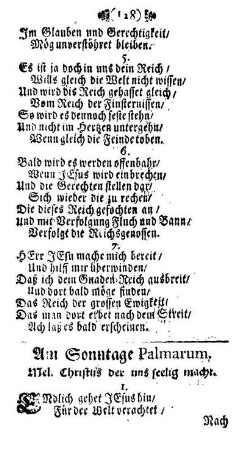 (128)
Im Glauben und Gerechtigkeit/
Mög unverstöhret bleiben.
5.
Es ist ja doch in uns dein Reich/
Wills gleich die Welt nicht wissen/
Und wird diß Reich gehasset gleich/
Vom Reich der Finsternissen/
So wird es dennoch feste stehn/
Und nicht im Hertzen untergehn/
Wenn gleich die Feinde toben.
6.
Bald wird es werden offenbahr/
Wenn JEsus wird einbrechen/
Und die Gerechten stellen dar/
Sich wieder die zu rechen/
Die dieses Reich gefochten an/
Und mit Verfolgung Fluch und Bann/
Verfolgt die Reichsgenossen.
7.
HErr JEsu mache mich bereit/
Und hilff mir überwinden/
Daß ich dein Gnaden-Reich ausbreit/
Und dort bald möge finden/
Das Reich der grossen Ewigkeit/
Das man dort erbet nach dem Streit/
Ach laß es bald erscheinen.
Am Sonntage Palmarum.
Mel. Christus der uns seelig macht.
1.
ENdlich gehet JEsus hin/
Für der Welt verachtet/
Nach